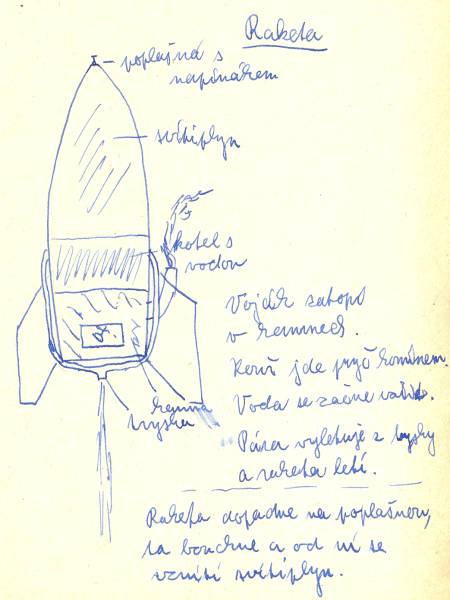 Raketa
poplašná s
napínákem
svítiplyn
kotel s
vodou
Voják zatopí
v kamnech.
Kouř jde pryč komínem.
Voda se začne vařit.
kamna
tryska
Pára vyletuje z trysky
a raketa letí.
Raketa dopadne na poplašnou,
ta bouchne a od ní se
vznítí svítiplyn.